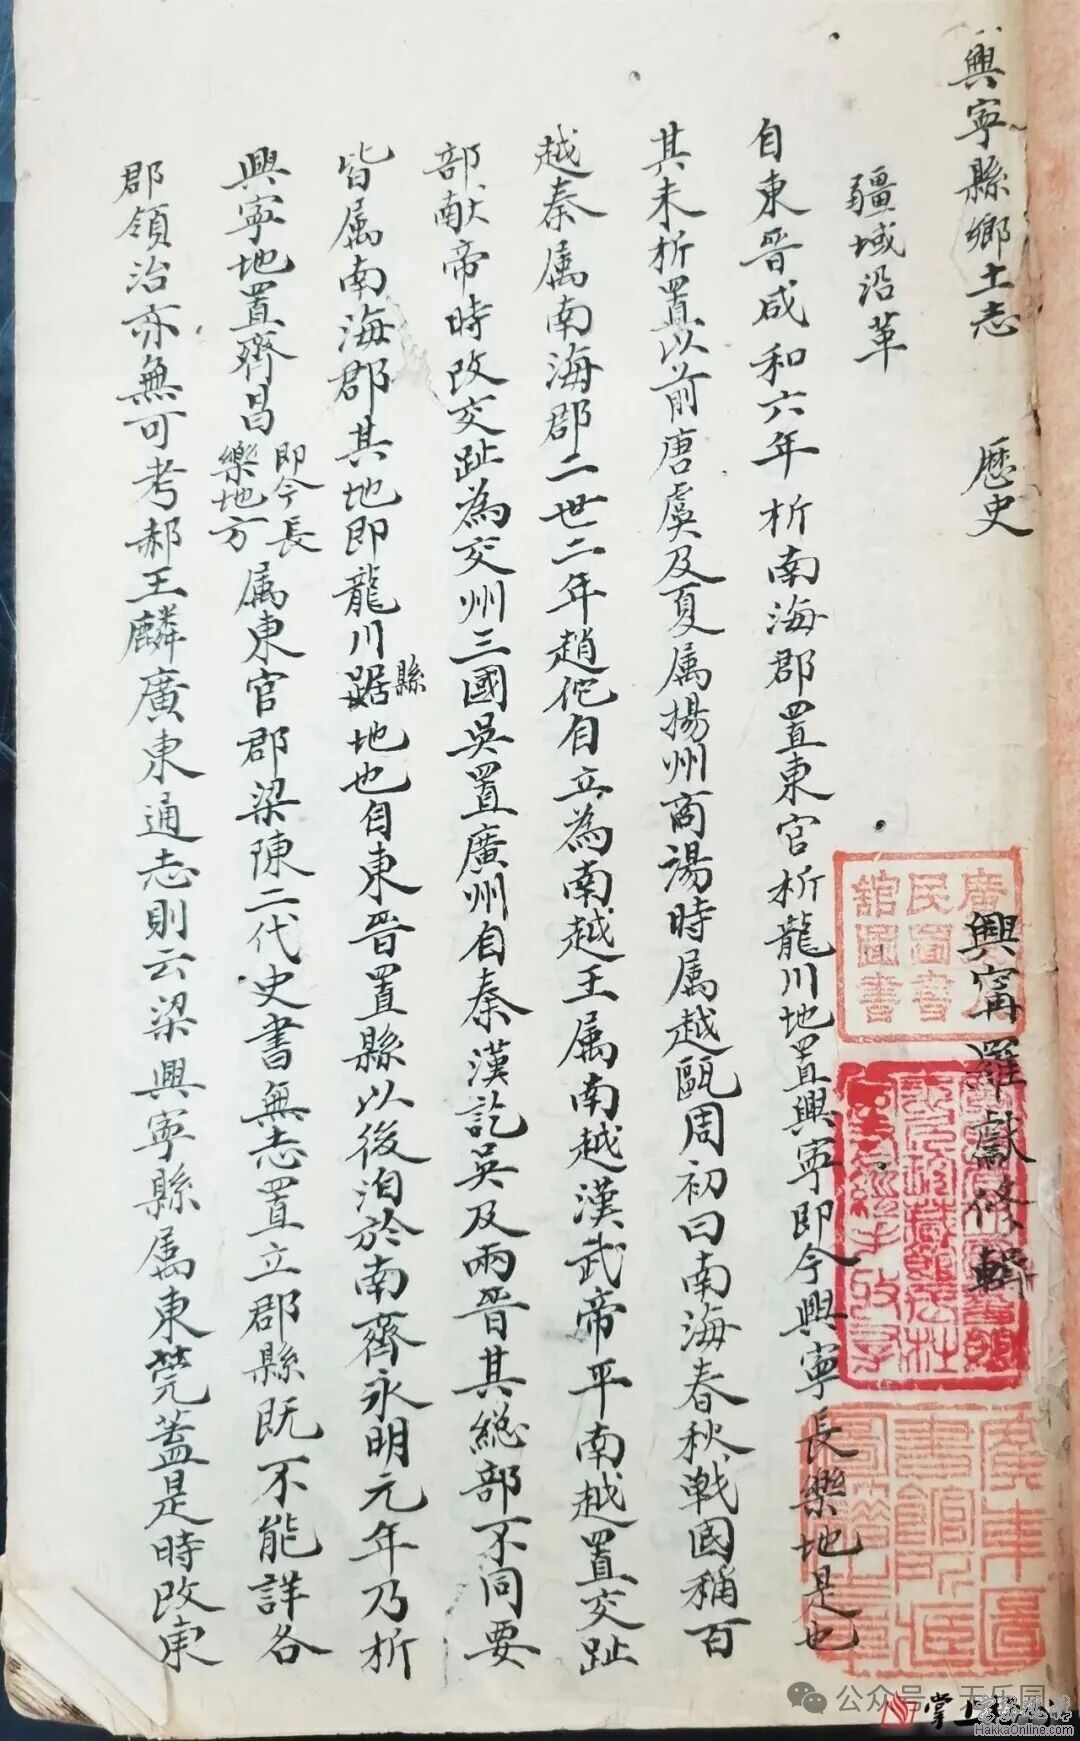 興寧縣鄉土志 歷史
興甯羅獻修輯
疆域沿革
自東晉咸和六年析南海郡置東官析龍川地置興寧即今興寧長樂地是也
其未析置以前唐虞及夏属揚州商湯時属越甌周初曰南海春秋戰國稱百
越秦属南海郡二世二年趙佗自立為南越王属南越漢武帝平南越置交趾
部献帝時改交趾為交州三國吳置廣州自秦漢訖吳及兩晉其總部不同要
皆属南海郡其地即龍川縣地也自東晉置縣以後洎於南齊永明元年乃析
興寧地置齊昌即今長樂地方属東官郡梁陳二代史書無志置立郡縣既不能詳各
郡領治亦無可考郝玉麟廣東通志則云梁興寧縣属東莞蓋是時改東
公众号·天乐园
掌上
HakkaOnline.com